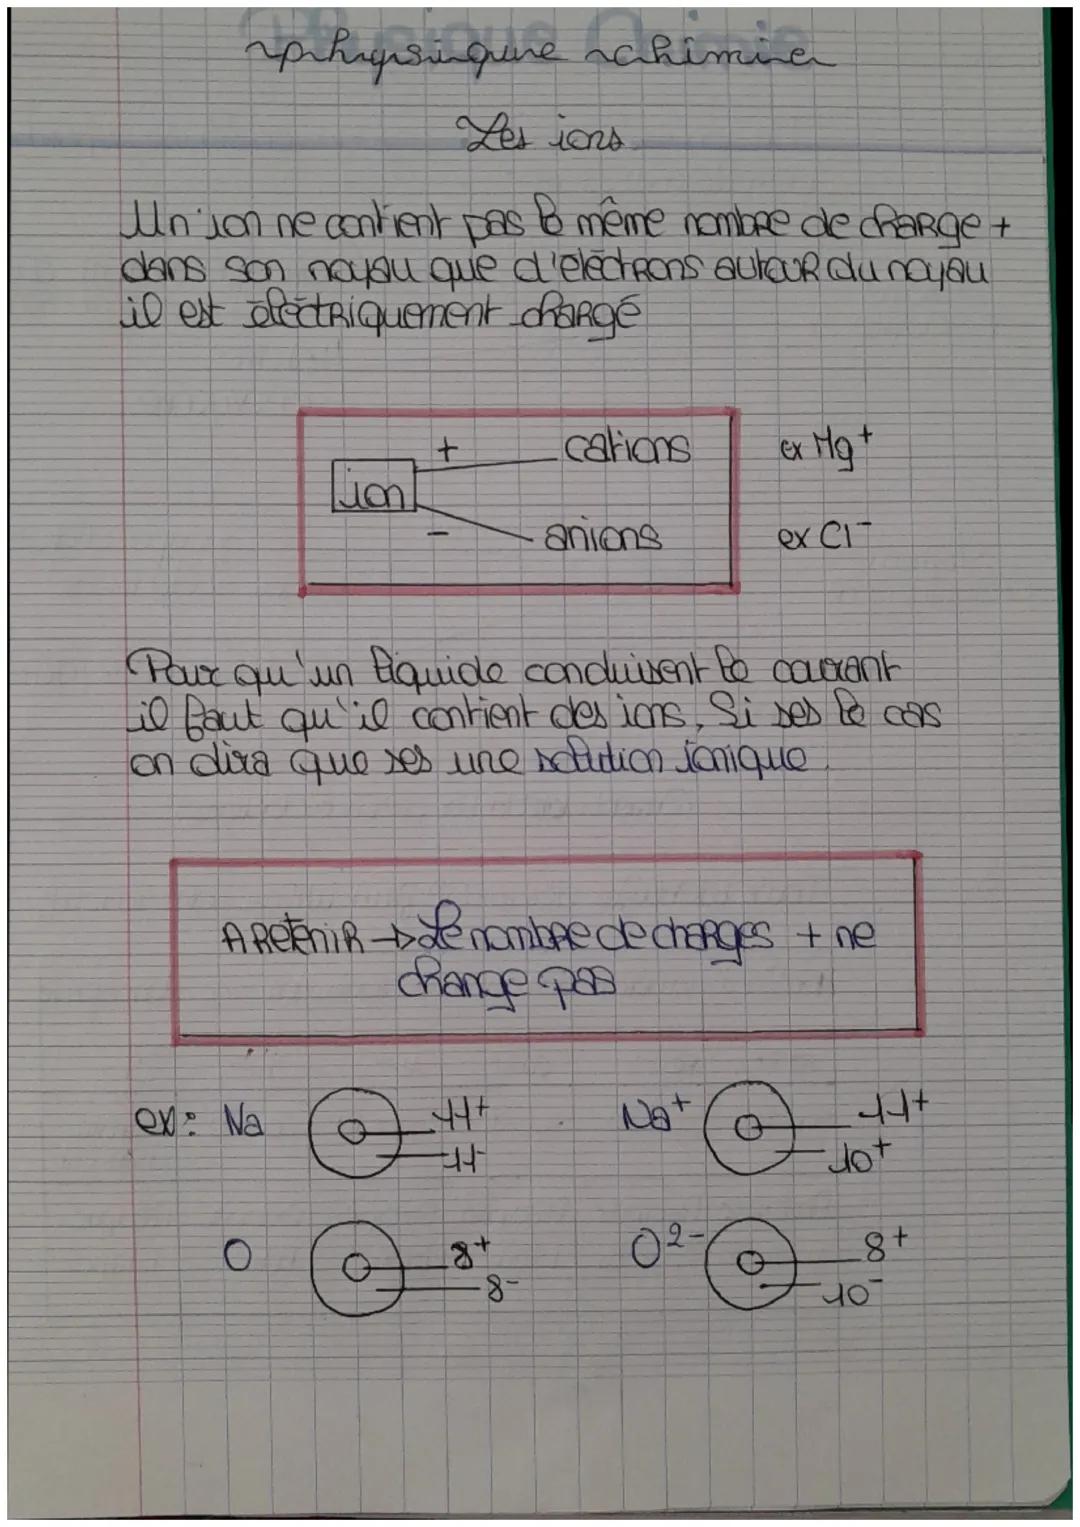 physique chimie
Les ions
Un ion ne contient pas le même nombre de charge +
dans son noyau que d'électrons autour du noyau
il est électriquement chargé
+ cations ex Mg+
ion
- anions ex Cl-
Pour qu'un liquide conduisent le courant
il faut qu'il contient des ions, Si ses le cas
on dira que ses une solution ionique.
A RETENIR → Le nombre de charges + ne
change pas
ex: Na 11+ Na+ 11+
11- 10+
O 8+ O2- 8+
8- 10-